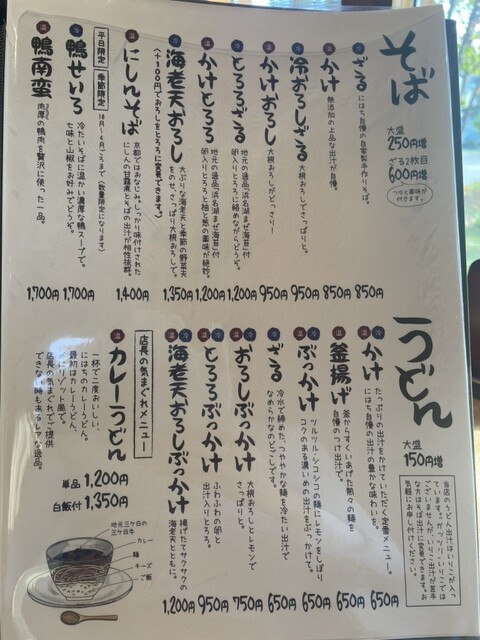 そば
大盛
250円増
ざる2枚目
600円増
つゆと薬味が
付きます。
冷
ざる
にはち自慢の自家製手作りそば。
850円
温
かけ
無添加の上品な出汁が自慢。
850円
冷
冷おろしざる
大根おろしでさっぱりと。
950円
温
かけおろし
大根おろしがどっさり!
950円
冷
とろろざる
地元の逸品「浜名湖まぜ海苔」付
卵入りとろろに絡めながらどうぞ。
1,200円
温
かけとろろ
地元の逸品「浜名湖まぜ海苔」付
卵入りとろろと柚と葱の薬味が絶妙。
1,200円
冷
海老天おろし
大ぶりな海老天と季節の野菜天
をのせ、さっぱり大根おろしで。
(+100円でおろしをとろろに変更できます。)
1,350円
温
にしんそば
京都ではおなじみ。しっかり味付けされた
にしんの甘露煮とそばの出汁が相性抜群。
1,400円
平日限定
季節限定
10月〜4月ごろまで(数量限定になります)
冷
鴨せいろ
冷たいそばに温かい濃厚な鴨スープで。
七味と山椒をお好みでどうぞ。
1,700円
温
鴨南蛮
肉厚の鴨肉を贅沢に使った一品。
1,700円
うどん
大盛
150円増
当店のうどん出汁はいりこが入っ
ています。ガッツリ・いりこでは
ございませんがいりこ出汁が苦手
な方はそば出汁に変更できます。お
気軽にお申し付けください。
冷
温
かけ
たっぷりの出汁をかけていただく定番メニュー。
にはち自慢の出汁の豊かな味わいを。
650円
温
釜揚げ
釜からすくいあげた熱々の麺を
自慢のつけ出汁で。
650円
冷
温
ぶっかけ
ツルツル・シコシコの麺にレモンをしぼり
コクのある濃いめの出汁をぶっかけて。
650円
冷
ざる
冷水で締めた、つややかな麺を冷たい出汁で
なめらかなのどごしです。
650円
冷
温
おろしぶっかけ
大根おろしとレモンで
さっぱりと。
750円
冷
温
とろろぶっかけ
ふわふわの卵と
出汁入りとろろ。
950円
冷
温
海老天おろしぶっかけ
揚げたてサクサクの
海老天とともに。
1,200円
店長の気まぐれメニュー
温
カレーうどん
一杯で二度おいしい、
にはちのカレーうどん。
最初はカレーうどん、
〆にリゾット風で。
店長の気まぐれでご提供
できない時もあるレアな逸品。
単品 1,200円
白飯付 1,350円
地元三ケ日の
三ケ日牛
カレー
麺
チーズ
ご飯